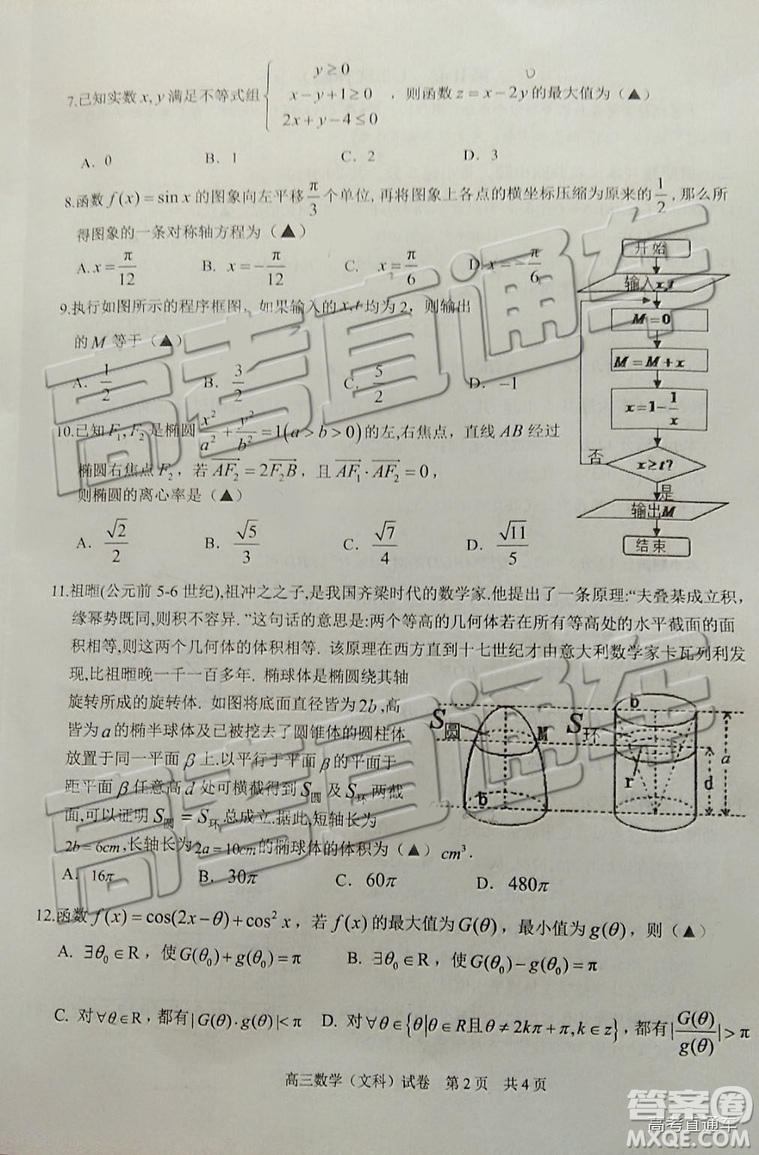 7.已知实数 x, y 满足不等式组 { y≥0 x-y+1≥0 2x+y-4≤0 ，则函数 z=x-2y 的最大值为（▲）
A. 0 B. 1 C. 2 D. 3
8.函数 f(x)=sin x 的图象向左平移 π/3 个单位, 再将图象上各点的横坐标压缩为原来的 1/2, 那么所
得图象的一条对称轴方程为（▲）
A. x=π/12 B. x=-π/12 C. x=π/6 D. x=-π/6
9.执行如图所示的程序框图，如果输入的 x,t 均为 2，则输出
的 M 等于（▲）
A. 1/2 B. 3/2 C. 5/2 D. -1
开始
输入x,t
M=0
M=M+x
x=1-1/x
x≥t?
否
是
输出M
结束
10.已知 F₁, F₂ 是椭圆 x²/a²+y²/b²=1(a>b>0)的左,右焦点，直线 AB 经过
椭圆右焦点 F₂，若 AF₂=2F₂B，且 AF₁·AF₂=0，
则椭圆的离心率是（▲）
A. √2/2 B. √5/3 C. √7/4 D. √11/5
11.祖暅(公元前 5-6 世纪),祖冲之之子,是我国齐梁时代的数学家.他提出了一条原理:“夫叠棊成立积，
缘幂势既同,则积不容异.”这句话的意思是:两个等高的几何体若在所有等高处的水平截面的面
积相等,则这两个几何体的体积相等. 该原理在西方直到十七世纪才由意大利数学家卡瓦列利发
现,比祖暅晚一千一百多年. 椭球体是椭圆绕其轴
旋转所成的旋转体. 如图将底面直径皆为 2b,高
皆为 a 的椭半球体及已被挖去了圆锥体的圆柱体
放置于同一平面 β 上.以平行于平面 β 的平面于
距平面 β 任意高 d 处可横截得到 S圆 及 S环 两截
面,可以证明 S圆=S环 总成立.据此,短轴长为
2b=6cm,长轴长为 2a=10cm 的椭球体的体积为（▲）cm³.
S圆 M b S环 b r d a
A. 16π B. 30π C. 60π D. 480π
12.函数 f(x)=cos(2x-θ)+cos²x，若 f(x) 的最大值为 G(θ)，最小值为 g(θ)，则（▲）
A. ∃θ₀∈R，使G(θ₀)+g(θ₀)=π B. ∃θ₀∈R，使G(θ₀)-g(θ₀)=π
C. 对∀θ∈R，都有|G(θ)·g(θ)|<π D. 对∀θ∈{θ|θ∈R且θ≠2kπ+π,k∈z}，都有|G(θ)/g(θ)|>π
高三数学（文科）试卷 第 2 页 共 4 页
高考直通车
高考直通车
答案圈
高考直通车
MXQE.COM